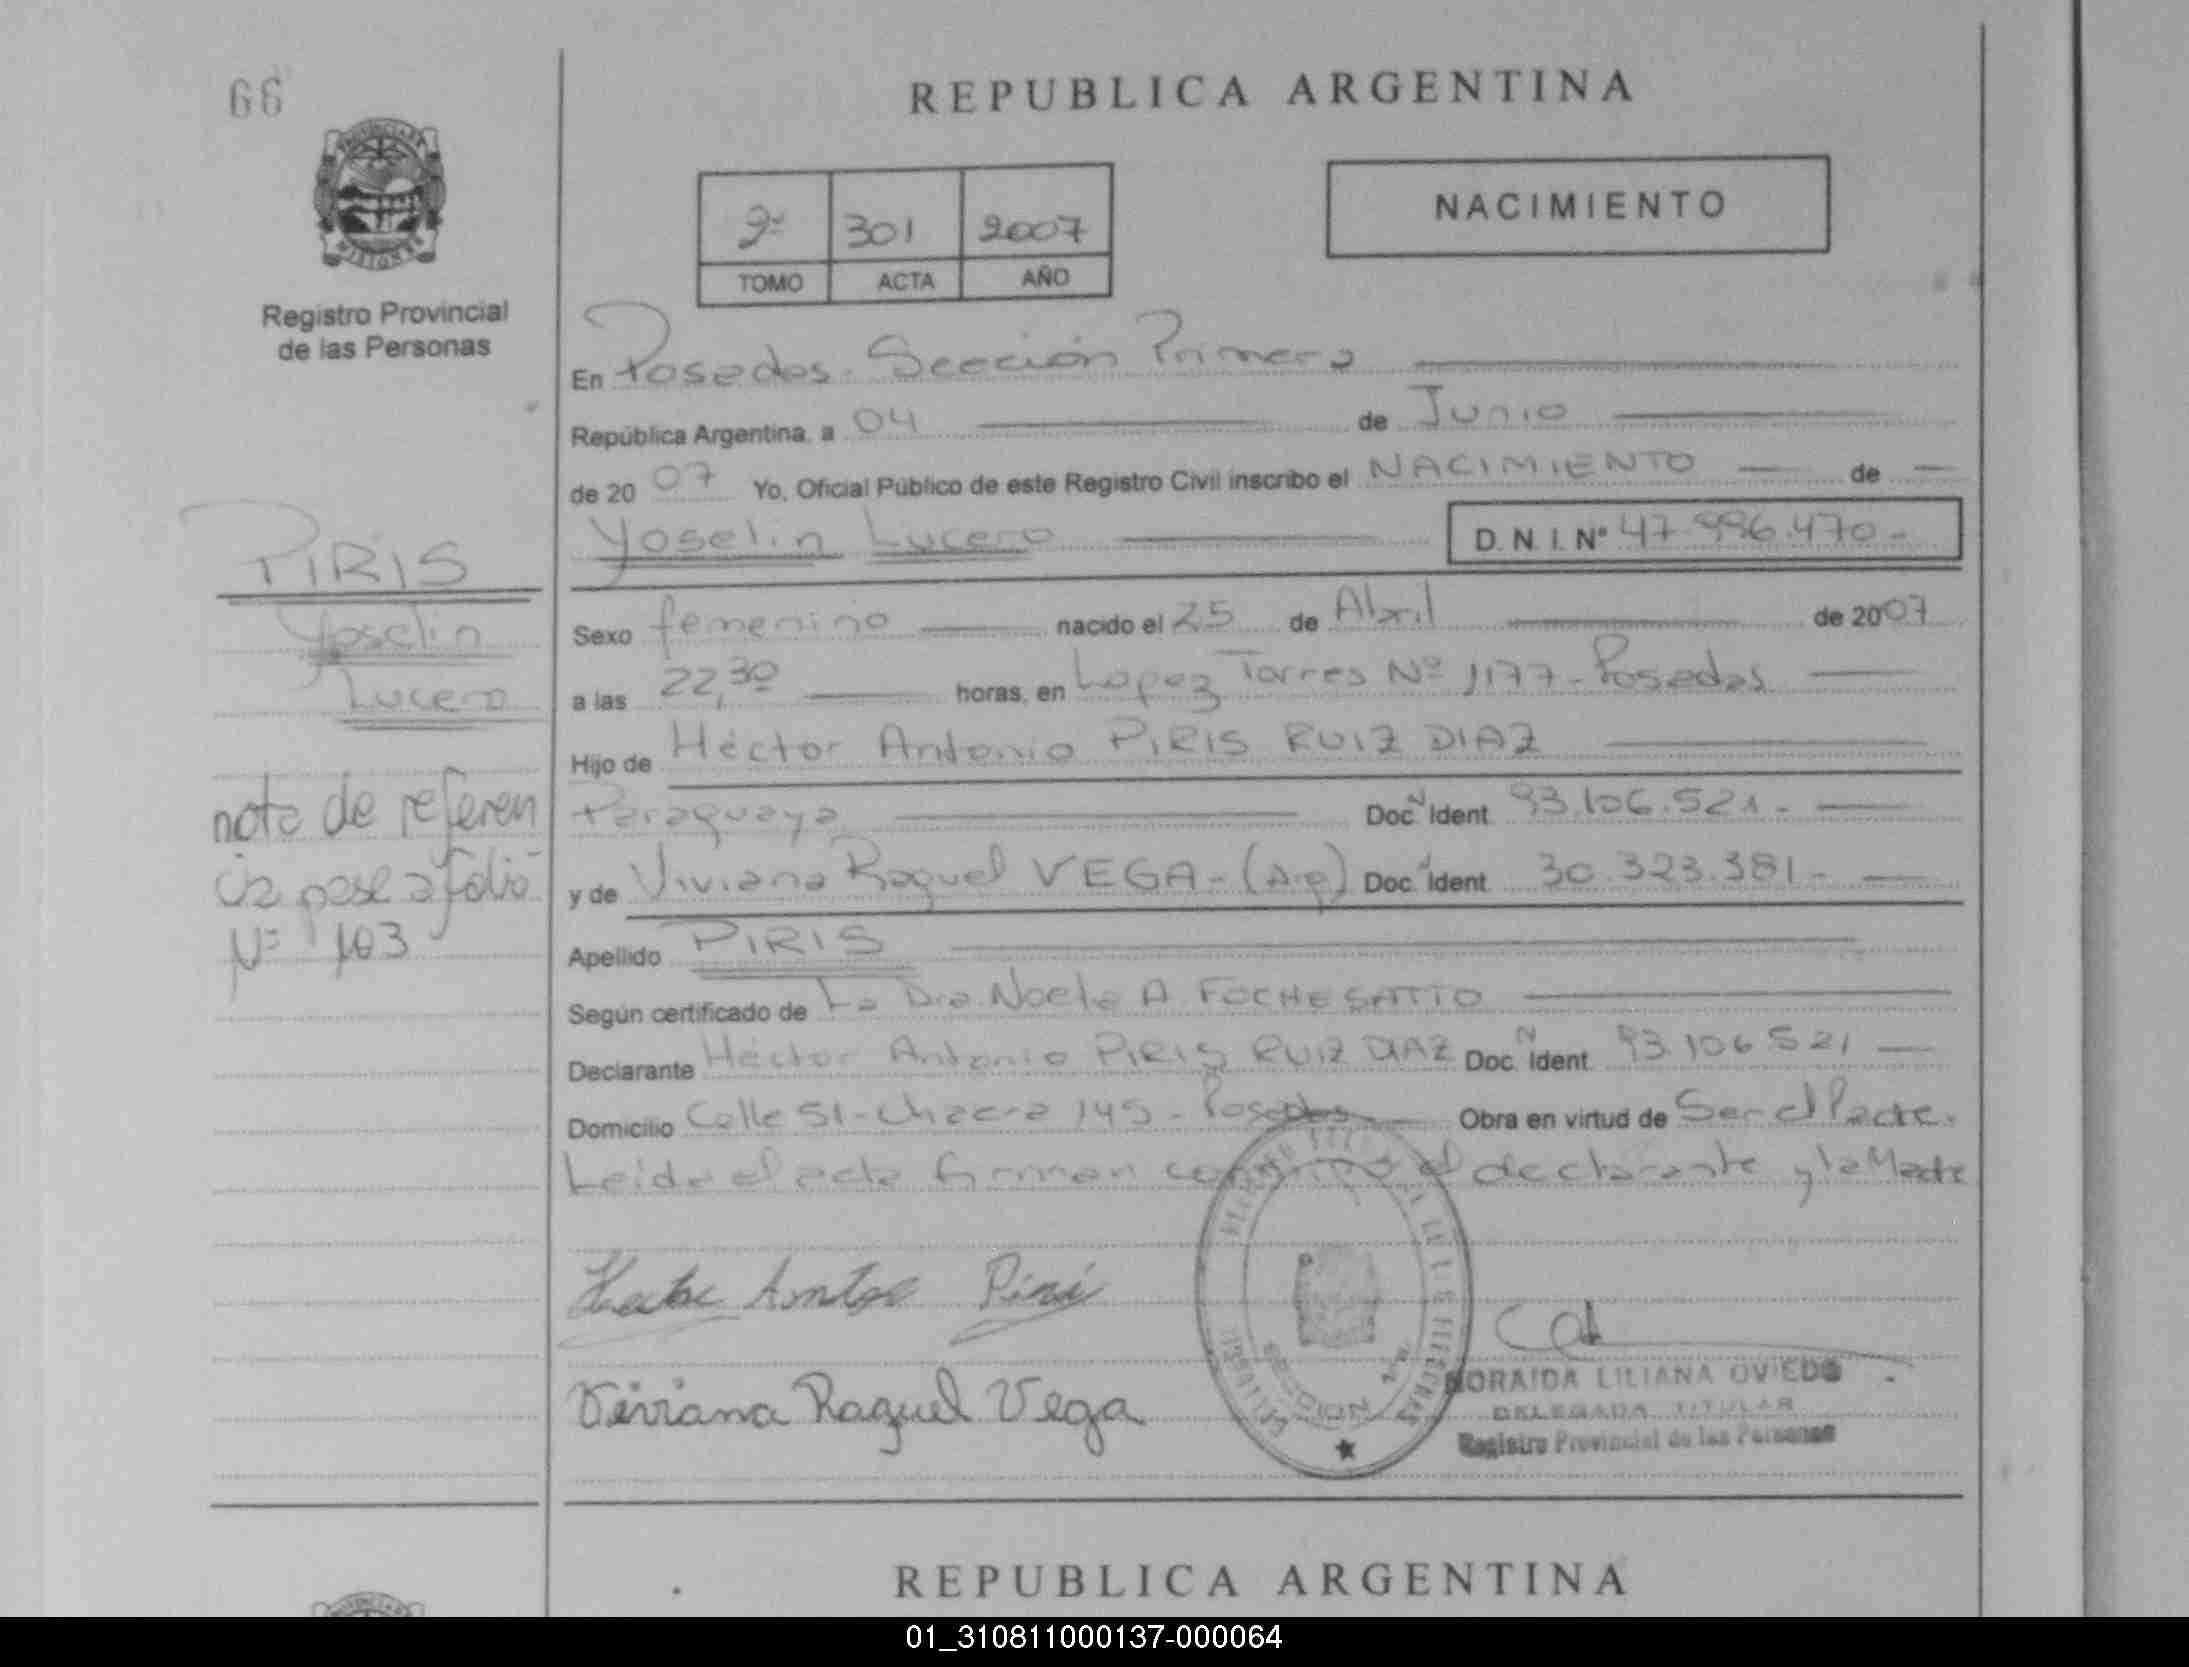 66
REPUBLICA ARGENTINA
PROVINCIA DE
MISIONES
2º 301 2007
TOMO ACTA AÑO
NACIMIENTO
Registro Provincial
de las Personas
En Posadas. Sección Primera
República Argentina, a 04 de Junio
de 20 07 Yo, Oficial Público de este Registro Civil inscribo el NACIMIENTO de
Yoselin Lucero D. N. I. Nº 47.996.470-
Sexo femenino nacido el 25 de Abril de 2007
a las 22,30 horas, en Lopez Torres Nº 1177-Posadas
Hijo de Héctor Antonio PIRIS RUIZ DIAZ
Paraguaya Doc. N Ident. 93.106.521.-
y de Viviana Raquel VEGA-(Arg) Doc. N Ident. 30.323.381-
Apellido PIRIS
Según certificado de La Dra. Noelia A. FOCHESATTO
Declarante Héctor Antonio PIRIS RUIZ DIAZ Doc. N Ident. 93.106.521
Domicilio Calle 51-Chacra 145-Posadas Obra en virtud de Ser el Padre.
Leída el acta firman conmigo el declarante y la Madre
PIRIS
Yoselin
Lucero
nota de referen
cia pase a folio
Nº 103
Viviana Raquel Vega
ORAIDA LILIANA OVIEDO
DELEGADA TITULAR
Registro Provincial de las Personas
REPUBLICA ARGENTINA
01_310811000137-000064